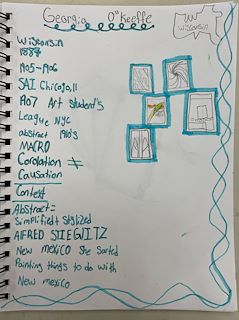 Georgia O'Keeffe
WISCONSIN
Wisconsin
1887
1905-1906
SAI Chicago, Il
1907 Art Student's
League NYC
abstract 1910's
MACRO
Corolation ≠
Causation
Context
Abstract=
Simplified + Stylized
AlFRED STIEGLITZ
New mexico she sorted
Painting things to do with
New mexico